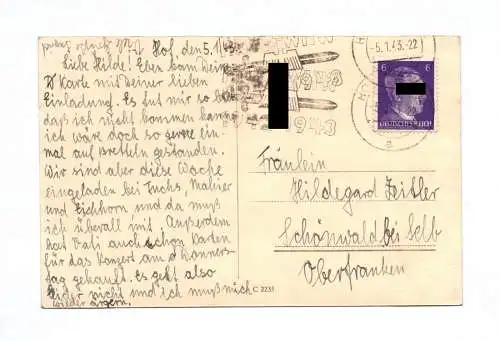 Hof, den 5.1.43.
Liebe Hilde! Eben kam Deine
Karte mit Deiner lieben
Einladung. Es tut mir so leid
daß ich nicht kommen kann
ich wäre doch so gerne ein-
mal auf Bretteln gestanden.
Wir sind aber diese Woche
eingeladen bei Fuchs,
und Eichhorn und da muß
ich überall mit. Außerdem
hat Vati auch schon Karten
für das Konzert am Donners-
tag gekauft. Es geht also
leider nicht und ich muß mich
wieder ärgern.
1943
1943
-5.1.43.-22
6 6
DEUTSCHES REICH
a
Fräulein
Hildegard Zeitler
Schönwald bei Selb
Oberfranken
C 2235